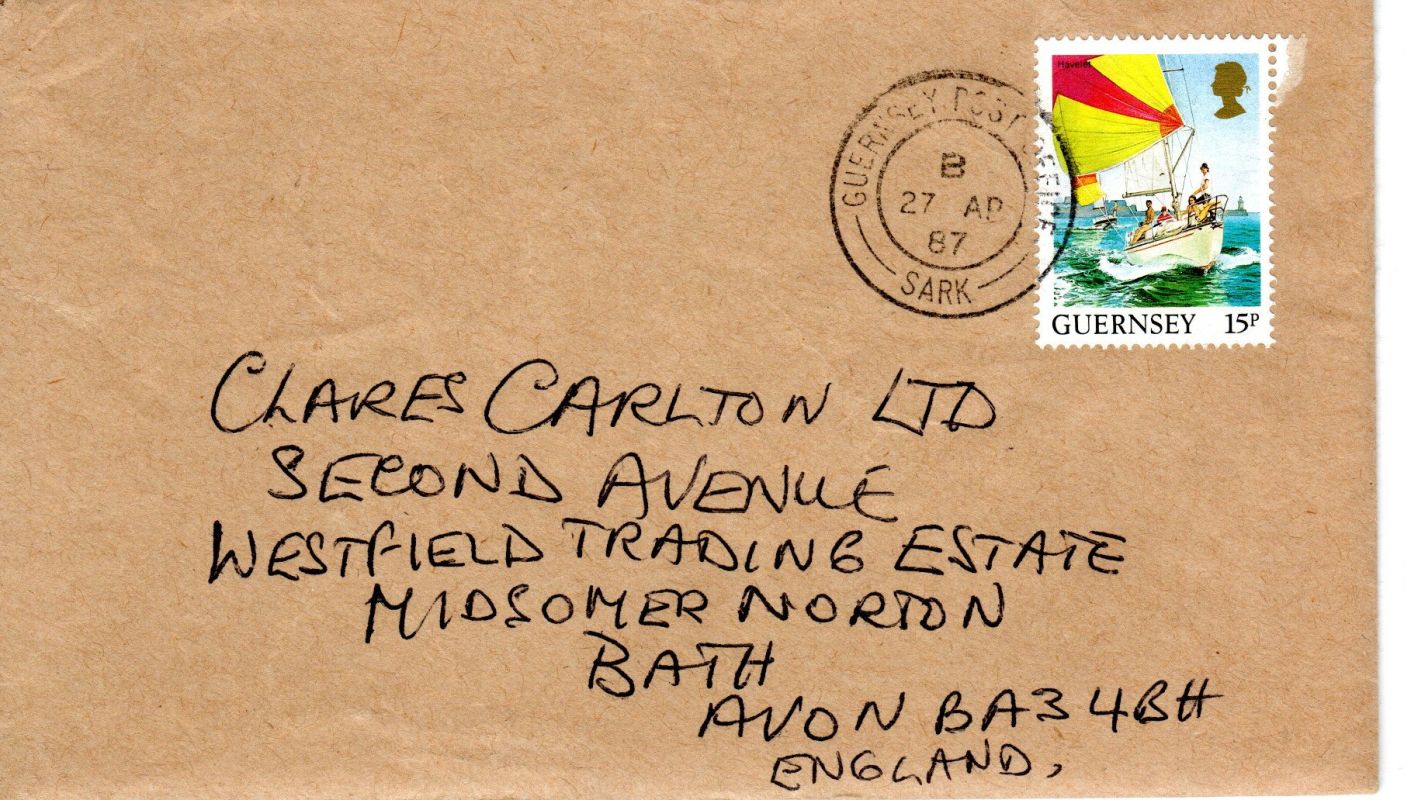 Havelet
GUERNSEY POST OFFICE
B
27 AP
87
SARK
GUERNSEY 15P
CLARES CARLTON LTD
SECOND AVENUE
WESTFIELD TRADING ESTATE
MIDSOMER NORTON
BATH
AVON BA3 4BH
ENGLAND,